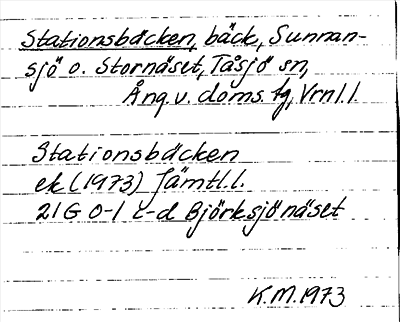 Stationsbäcken, bäck, Sunnan-
sjö o. Stornäset, Tåsjö sn,
Ång. v. doms. tg, Vrnl. l.
Stationsbäcken
ek (1973) Jämtl. l.
21G 0-1 c-d Björksjönäset
K.M. 1973